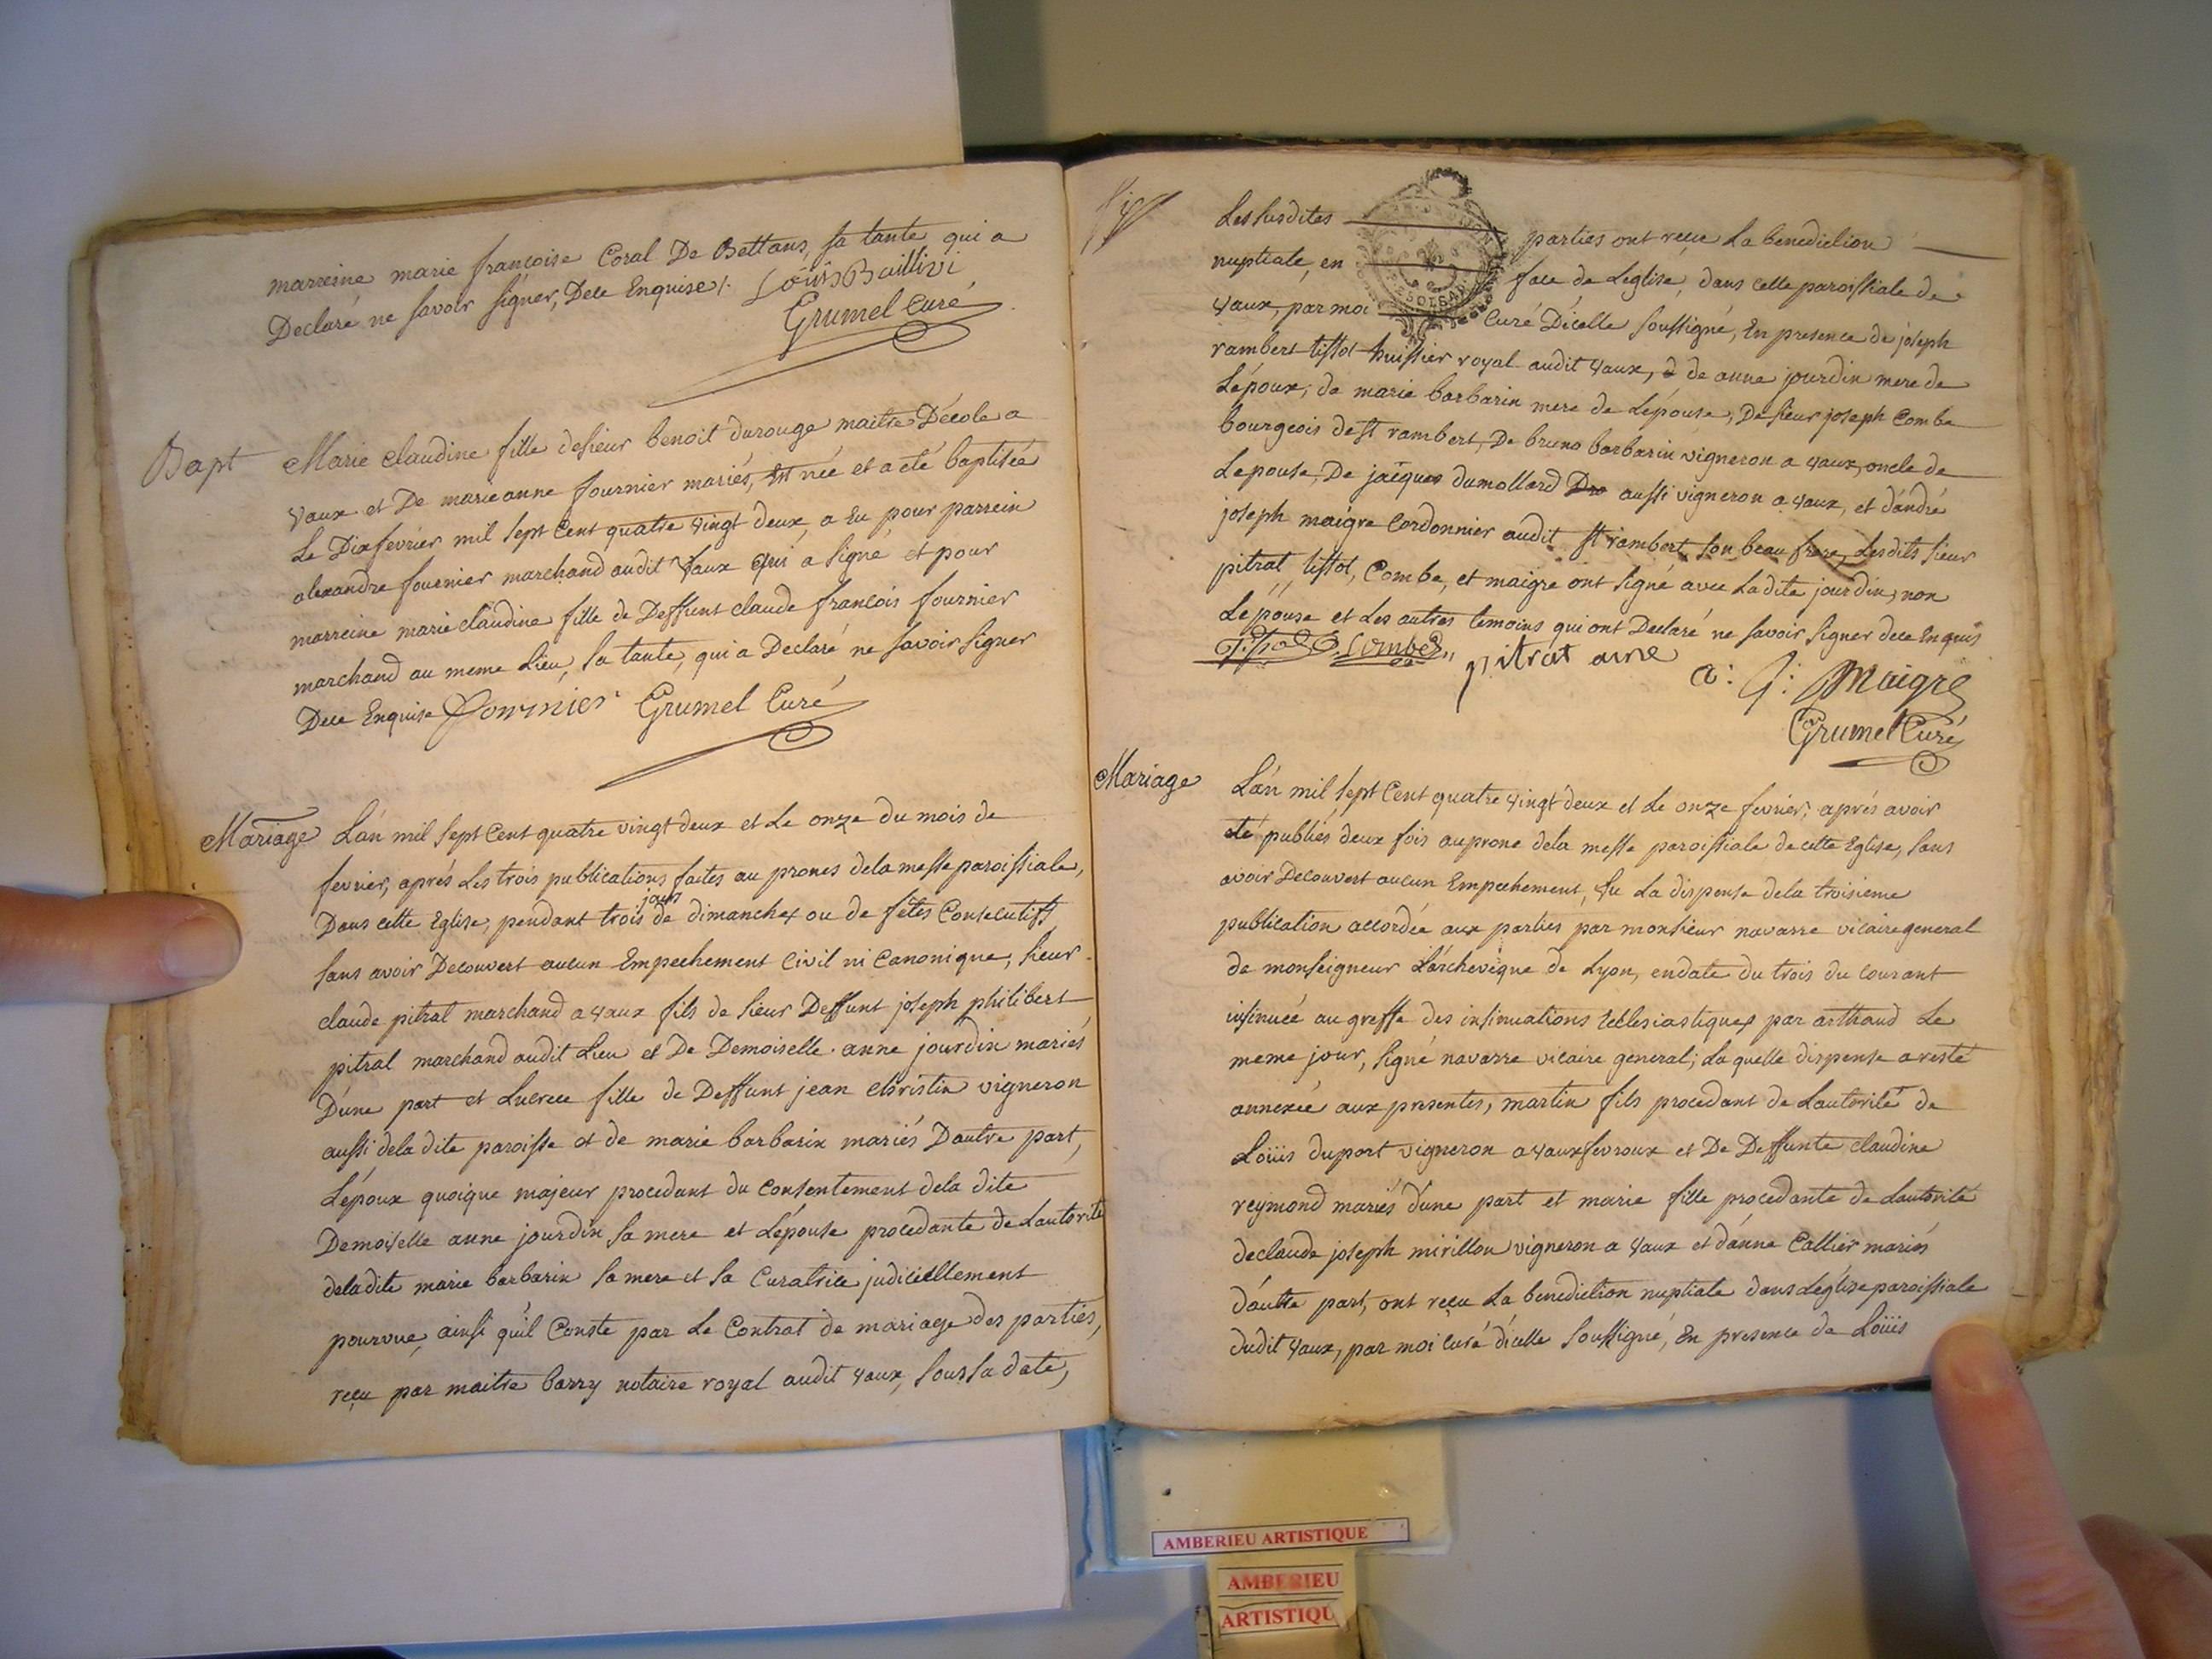 marreine marie françoise Coral De Bettans, sa tante qui a
Declaré ne savoir signer, Dece Enquise /. Loüis Baillivi
Grumel curé
Bapt
Marie claudine fille desieur benoit durouge maitre D'école a
vaux et De marieanne fournier mariés, Est née et a eté baptisée
Le Dix fevrier mil sept Cent quatre vingt deux, a Eu pour parrein
alexandre fournier marchand audit vaux qui a signé et pour
marreine marie claudine fille de Deffunt claude françois fournier
marchand au meme Lieu, sa tante, qui a Declaré ne savoir signer
Dece Enquise Fournier Grumel Curé
Mariage
L'an mil sept Cent quatre vingt deux et Le onze du mois de
fevrier, aprés Les trois publications faites au prones dela messe paroissiale,
Dans cette Eglise, pendant trois jours de dimanches ou de fêtes Consecutifs
sans avoir Decouvert aucun Empechement Civil ni Canonique, sieur
claude pitrat marchand a vaux fils de sieur Deffunt joseph philibert
pitrat marchand audit Lieu et De Demoiselle anne jourdin mariés
D'une part et Lucrece fille de Deffunt jean christin vigneron
aussi dela dite paroisse et de marie barbarin mariés D'autre part,
L'époux quoique majeur procedant du Consentement dela dite
Demoiselle anne jourdin sa mere et L'épouse procedante de L'autorité
deladite marie barbarin sa mere et sa Curatrice judiciellement
pourvue, ainsi qu'il Conste par Le Contrat de mariage des parties,
reçu par maitre barry notaire royal audit vaux, sous sa date,
Les susdites parties ont reçue La benediction
nuptiale, en face de L'eglise, dans cette paroissiale de
vaux, par moi Curé D'icelle soussigné, En presence de joseph
rambert tissot huissier royal audit vaux, de anne jourdin mere de
L'époux, de marie barbarin mere de L'épouse, De sieur joseph Combe
bourgeois de st rambert, De bruno barbarin vigneron a vaux, oncle de
Lepouse, De jaiques dumollard Dro aussi vigneron a vaux, et d'andré
joseph maigre Cordonnier audit st rambert son beau frere, Lesdits sieur
pitrat, tissot, Combe, et maigre ont signé avec Ladite jourdin, non
Lépouse et Les autres temoins qui ont Declaré ne savoir signer dece Enquis
Tissot Combe pitrat ainé a: j: Maigre
Grumel Curé
Mariage
L'an mil sept Cent quatre vingt deux et Le onze fevrier, aprés avoir
eté publiés deux fois auprone dela messe paroissiale de cette Eglise, sans
avoir Decouvert aucun Empechement, vu La dispense dela troisieme
publication accordée aux parties par monsieur navarre vicaire general
de monseigneur L'archevêque de Lyon, endate du trois du courant
insinuée au greffe des insinuations Ecclesiastiques par arthaud Le
meme jour, signé navarre vicaire general; La quelle dispense a resté
annexée aux presentes, martin fils procedant de L'autorité de
Loüis duport vigneron a vauxfevroux et De Deffunte claudine
reymond mariés d'une part et marie fille procedante de L'autorité
declaude joseph mirillon vigneron a vaux et d'anne Callier mariés
d'autre part, ont reçu La benediction nuptiale dans L'église paroissiale
dudit vaux, par moi curé d'icelle soussigné, En presence de Loüis
AMBERIEU ARTISTIQUE
AMBERIEU
ARTISTIQU